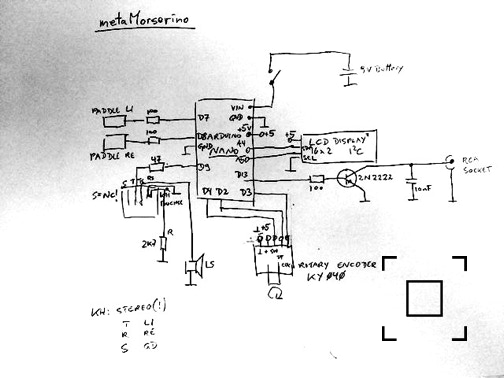 metaMorserino
5V Battery
PADDLE LI
100
D7
VIN
GND
+5V
+5
100
D8 ARDUINO
GND
NANO
A4
A5
+5
SDA
SCL
LCD DISPLAY
16x2 I²C
PADDLE RE
47
D9
D13
100
2N2222
10nF
RCA
SOCKET
D4 D2
D3
S=NC!
S T S R
KH
2k2
R
LS
+5
ROTARY ENCODER
KY 040
KH: STEREO(!)
T LI
R RE
S